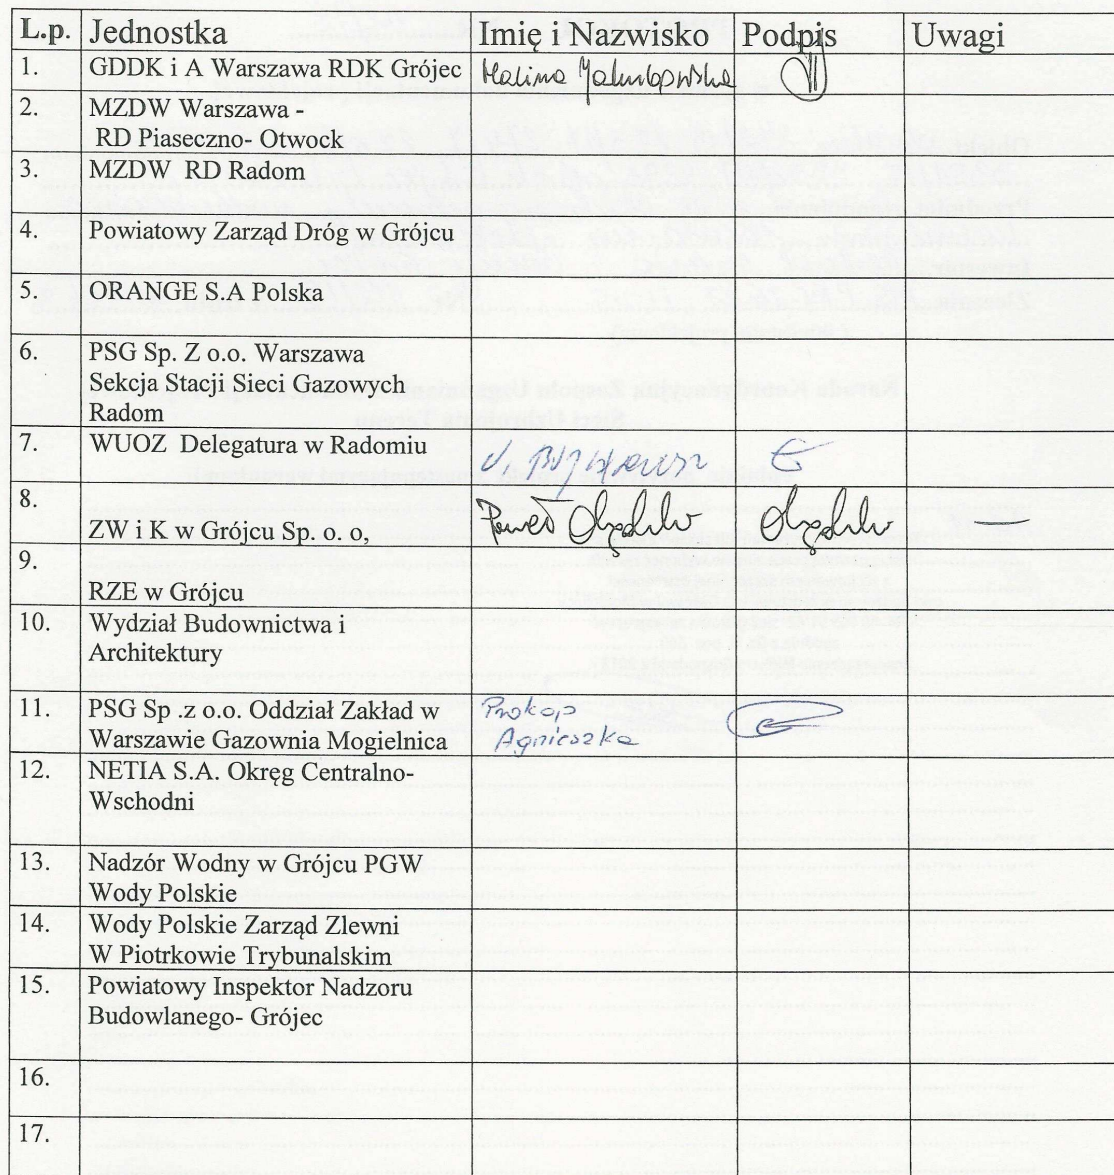 L.p. Jednostka Imię i Nazwisko Podpis Uwagi
1. GDDK i A Warszawa RDK Grójec Halina Jakubowska
2. MZDW Warszawa -
RD Piaseczno- Otwock
3. MZDW RD Radom
4. Powiatowy Zarząd Dróg w Grójcu
5. ORANGE S.A Polska
6. PSG Sp. Z o.o. Warszawa
Sekcja Stacji Sieci Gazowych
Radom
7. WUOZ Delegatura w Radomiu
8.
ZW i K w Grójcu Sp. o. o, Paweł —
9.
RZE w Grójcu
10. Wydział Budownictwa i
Architektury
11. PSG Sp .z o.o. Oddział Zakład w Prokop
Warszawie Gazownia Mogielnica Agnieszka
12. NETIA S.A. Okręg Centralno-
Wschodni
13. Nadzór Wodny w Grójcu PGW
Wody Polskie
14. Wody Polskie Zarząd Zlewni
W Piotrkowie Trybunalskim
15. Powiatowy Inspektor Nadzoru
Budowlanego- Grójec
16.
17.